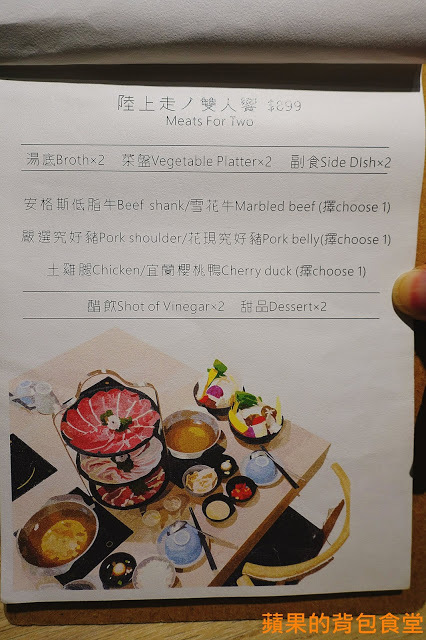 陸上走ノ雙人饗 $899
Meats For Two
湯底Broth×2 菜盤Vegetable Platter×2 副食Side Dish×2
安格斯低脂牛Beef shank/雪花牛Marbled beef(擇choose 1)
嚴選究好豬Pork shoulder/花現究好豬Pork belly(擇choose 1)
土雞腿Chicken/宜蘭櫻桃鴨Cherry duck (擇choose 1)
醋飲Shot of Vinegar×2 甜品Dessert×2
蘋果的背包食堂